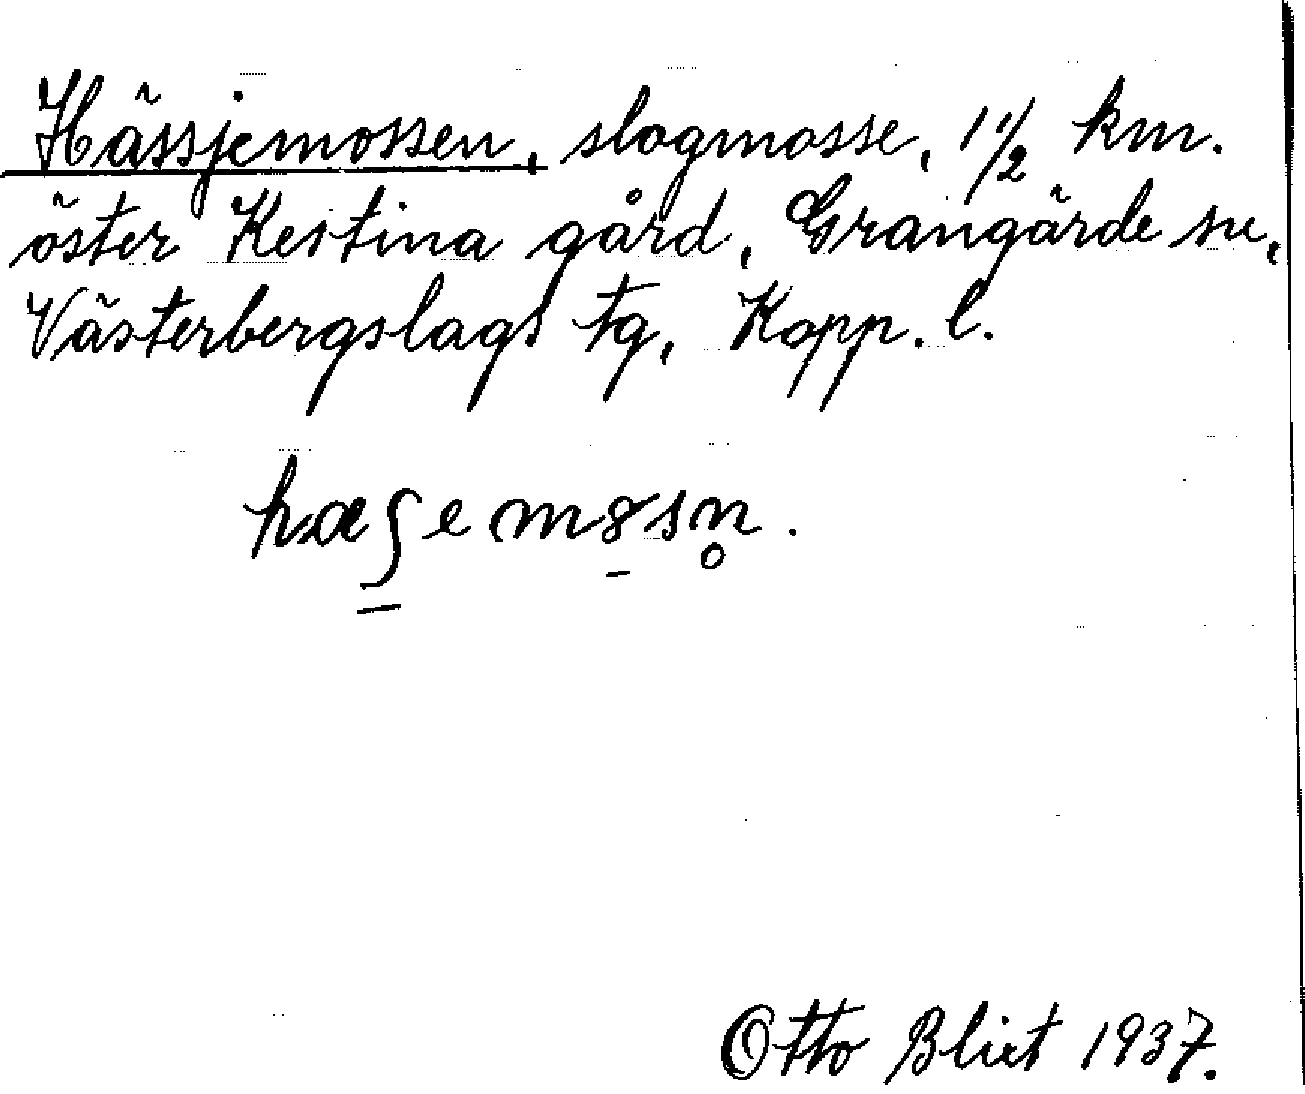 Hässjemossen, slogmosse, 1 1/2 km.
öster Kestina gård, Grangärde sn,
Västerbergslags tg, Kopp. l.
hæʃem8sn̥.
Otto Blixt 1937.